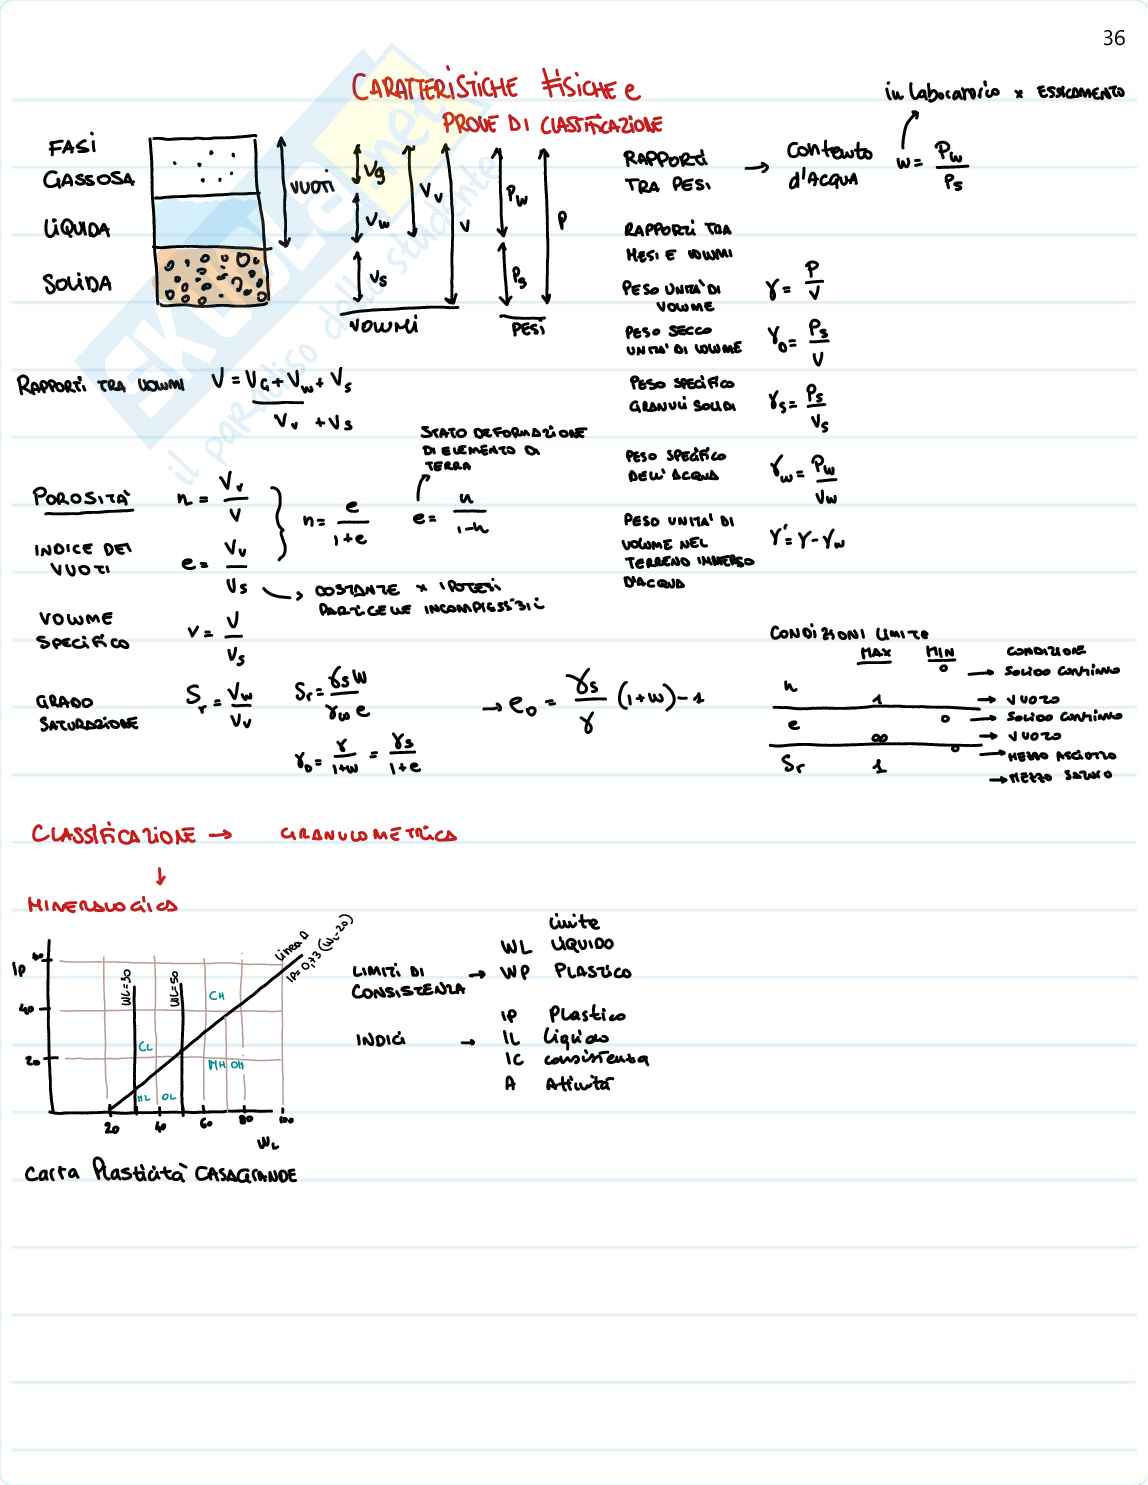 36
CARATTERISTICHE FISICHE e
PROVE DI CLASSIFICAZIONE
in Laboratorio x ESSICAMENTO
FASI
GASSOSA
LIQUIDA
SOLIDA
VUOTI
Vg
Vw
Vs
Vv
V
VOLUMI
Pw
Ps
P
PESI
RAPPORTI
TRA PESI
→ Contenuto
d'ACQUA
w = Pw / Ps
RAPPORTI TRA
PESI E VOLUMI
PESO UNITA' DI
VOLUME
γ = P / V
PESO SECCO
UNITA' DI VOLUME
γD = Ps / V
PESO SPECIFICO
GRANULI SOLIDI
γs = Ps / Vs
PESO SPECIFICO
DELL' ACQUA
γw = Pw / Vw
PESO UNITA' DI
VOLUME NEL
TERRENO IMMERSO
D'ACQUA
γ' = γ - γw
RAPPORTI TRA VOLUMI V = VG + Vw + Vs
Vv + Vs
STATO DEFORMAZIONE
DI ELEMENTO DI
TERRA
POROSITA' n = Vv / V
n = e / 1+e
e = n / 1-n
INDICE DEI
VUOTI
e = Vv / Vs
→ COSTANTE x IPOTESI
PARTICELLE INCOMPRESSIBILI
VOLUME
SPECIFICO
v = V / Vs
GRADO
SATURAZIONE
Sr = Vw / Vv
Sr = γs w / γw e
→ e0 = γs / γ (1+w) - 1
γD = γ / 1+w = γs / 1+e
CONDIZIONI LIMITE
MAX MIN CONDIZIONE
0 → SOLIDO CONTINUO
n
1 → VUOTO
e 0 → SOLIDO CONTINUO
∞ → VUOTO
0 → MEZZO ASCIUTTO
Sr 1
→ MEZZO SATURO
CLASSIFICAZIONE → GRANULOMETRICA
↓
MINERALOGICA
IP
60
40
20
WL=30
WL=50
Linea A
IP=0,73 (WL-20)
CH
CL
MH OH
ML OL
20 40 60 80 100
WL
Carta Plasticità CASAGRANDE
LIMITI DI
CONSISTENZA
→
Limite
WL LIQUIDO
WP PLASTICO
INDICI →
IP Plastico
IL Liquido
IC consistenza
A Attività
SKUOLA.net
il paradiso dello studente